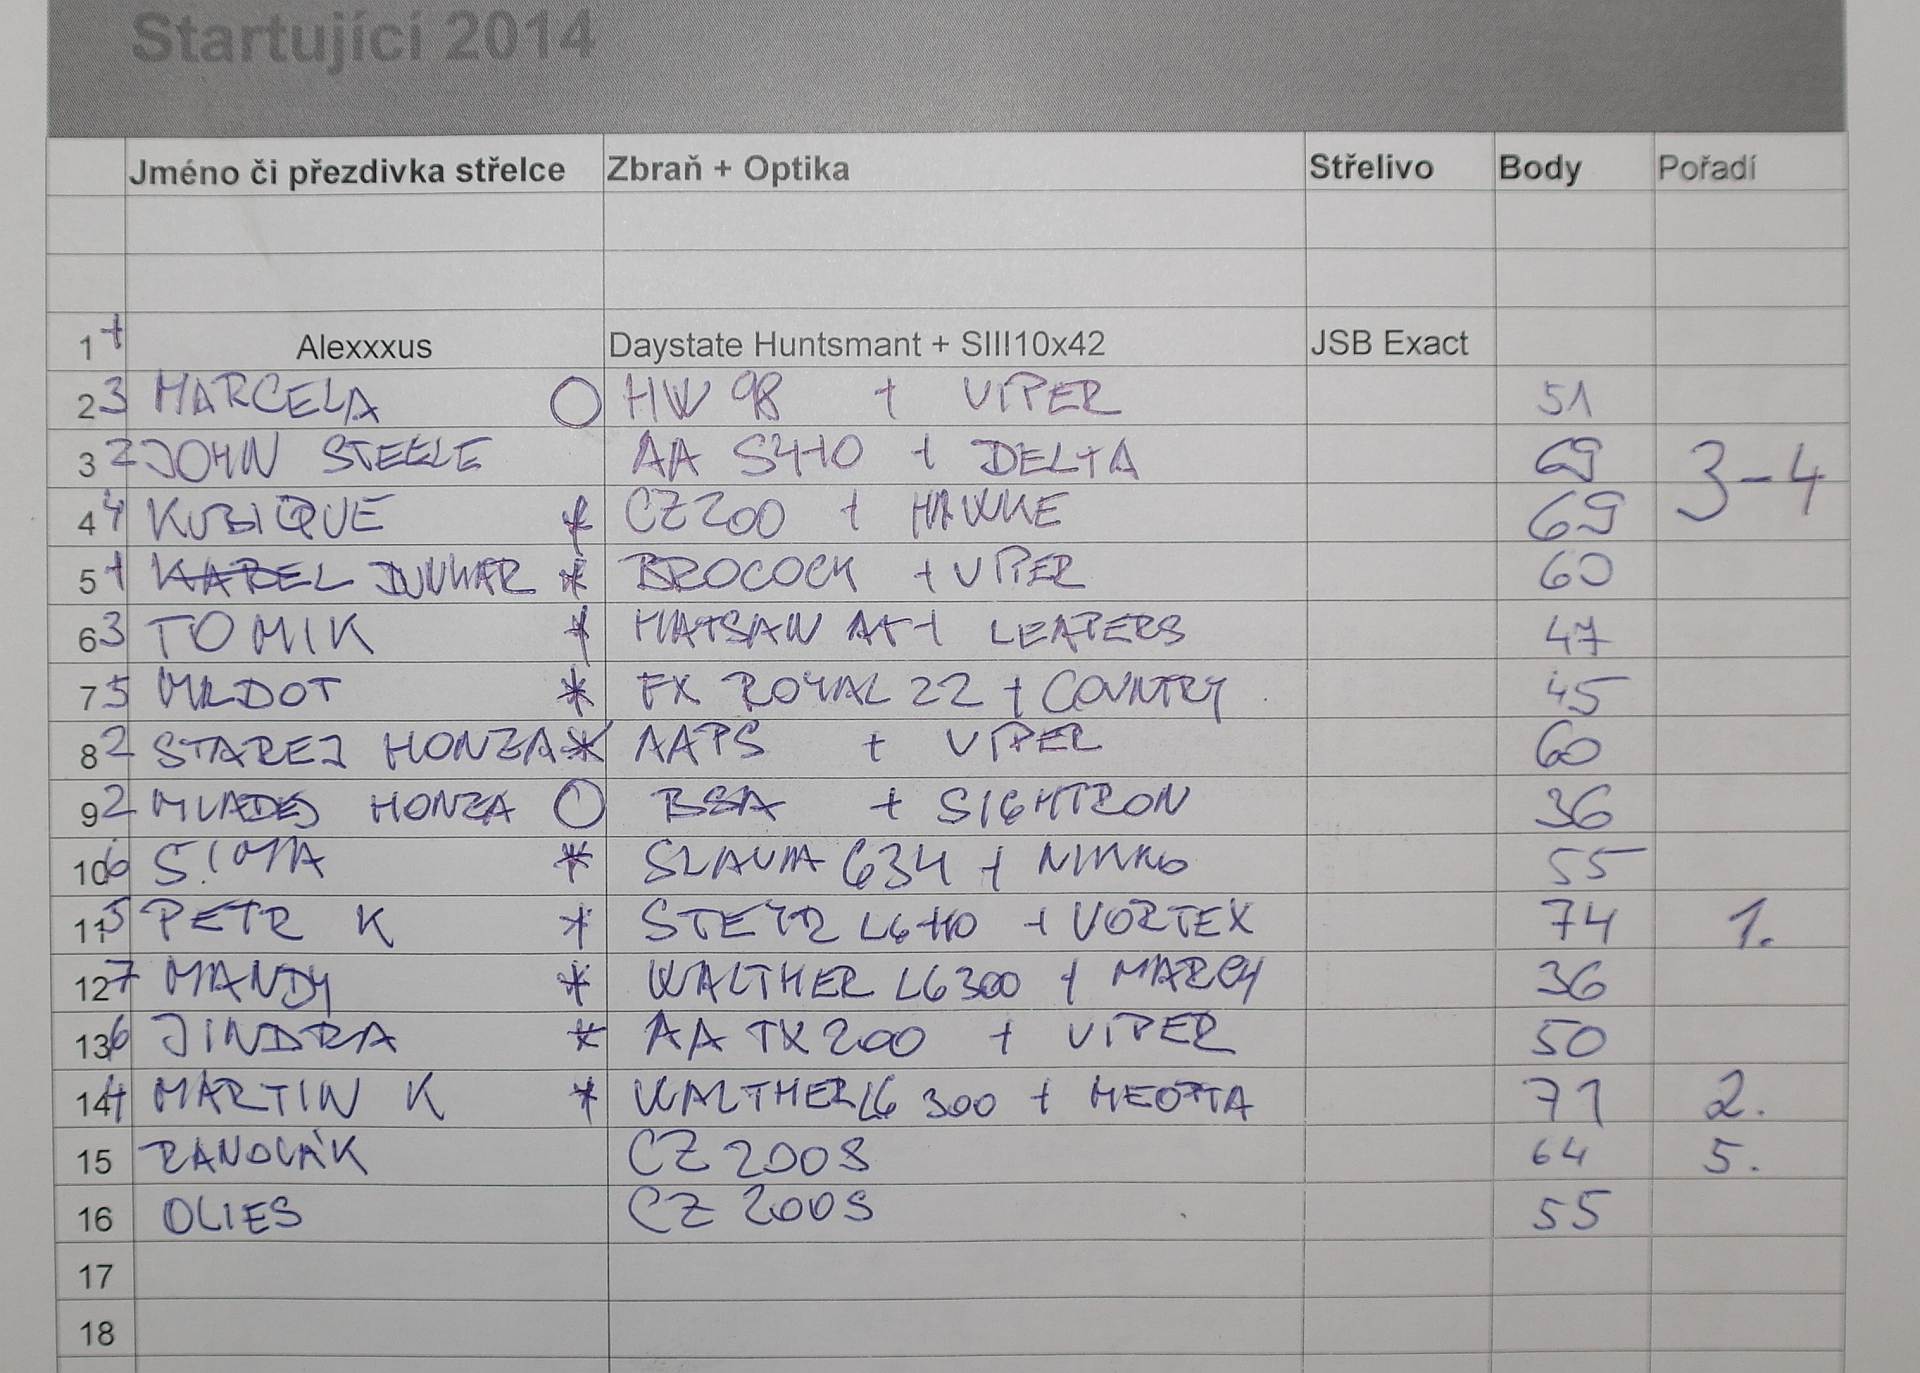 Startující 2014
Jméno či přezdivka střelce Zbraň + Optika Střelivo Body Pořadí
1 + Alexxxus Daystate Huntsmant + SIII10x42 JSB Exact
2 3 MARCELA O HW 98 + VIPER 51
3 2 JOHN STEELE AA S410 + DELTA 69 3-4
4 4 KUBIQUE * CZ 200 + HAWKE 69
5 1 KAREL JUNKER * BROCOCK + VIPER 60
6 3 TOMIK * HATSAN AT + LEAPERS 47
7 5 MLDOT * FX ROYAL 22 + COUNTRY 45
8 2 STAREJ HONZA * AAPS + VIPER 60
9 2 MLADEJ HONZA O BSA + SIGHTRON 36
10 6 SIMA * SLAVIA 634 + NIKKO 55
11 5 PETR K * STEYR LG 110 + VORTEX 74 1.
12 7 MANDY * WALTHER LG 300 + MARCH 36
13 6 JINDRA * AA TX 200 + VIPER 50
14 4 MARTIN K * WALTHER LG 300 + MEOPTA 71 2.
15 CZ 200S 64 5.
16 OLIES CZ 200S 55
17
18